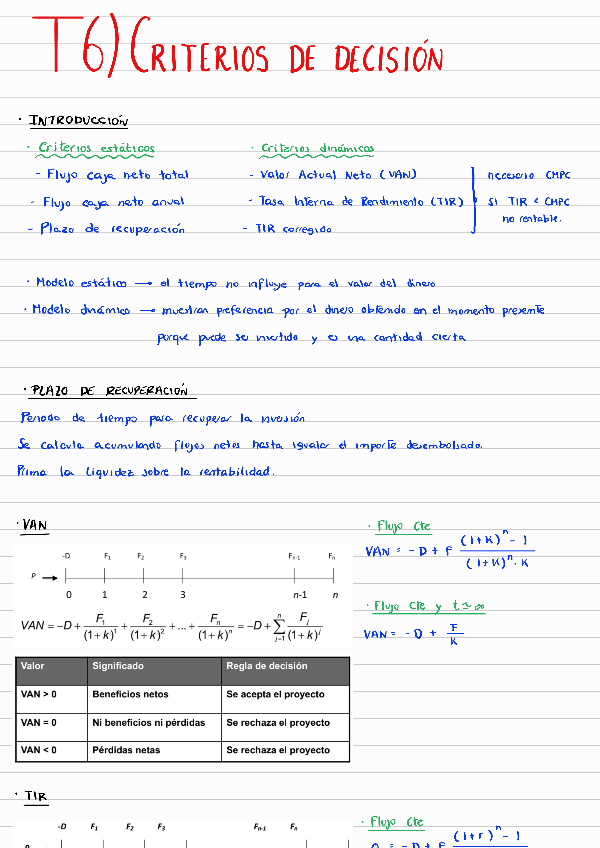 T6) CRITERIOS DE DECISIÓN
· INTRODUCCIÓN
· Criterios estáticos
- Flujo caja neto total
- Flujo caja neto anual
- Plazo de recuperación
· Criterios dinámicos
- Valor Actual Neto (VAN)
- Tasa Interna de Rendimiento (TIR)
- TIR corregido
necesario CMPC
si TIR < CMPC
no rentable.
· Modelo estático → el tiempo no influye para el valor del dinero
· Modelo dinámico → muestran preferencia por el dinero obtenido en el momento presente
porque puede ser invertido y es una cantidad cierta
· PLAZO DE RECUPERACIÓN
Periodo de tiempo para recuperar la inversión
Se calcula acumulando flujos netos hasta igualar el importe desembolsado.
Prima la liquidez sobre la rentabilidad.
· VAN
-D F₁ F₂ F₃ Fₙ₋₁ Fₙ
P
0 1 2 3 n-1 n
VAN = -D + F₁/(1+k)¹ + F₂/(1+k)² + ... + Fₙ/(1+k)ⁿ = -D + Σⁿⱼ₌₁ Fⱼ/(1+k)ʲ
· Flujo Cte
VAN = -D + F ((1+K)ⁿ - 1)/((1+K)ⁿ · K)
· Flujo Cte y t ≃ ∞
VAN = -D + F/K
Valor Significado Regla de decisión
VAN > 0 Beneficios netos Se acepta el proyecto
VAN = 0 Ni beneficios ni pérdidas Se rechaza el proyecto
VAN < 0 Pérdidas netas Se rechaza el proyecto
· TIR
-D F₁ F₂ F₃ Fₙ₋₁ Fₙ
· Flujo Cte
0 = -D + F (1+r)ⁿ - 1